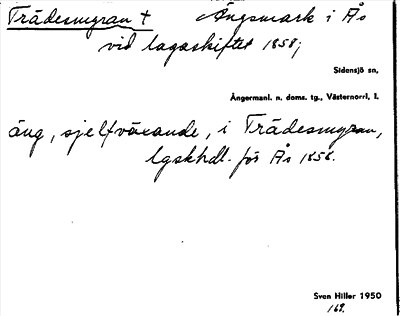 Trädesmyran † Ängsmark i Ås
vid lagaskiftet 1858;
Sidensjö sn,
Ångermanl. n. doms. tg., Västernorrl. l.
äng, sjelfväxande, i Trädesmyran,
lgskhdl. för Ås 1858.
Sven Hiller 1950
169.